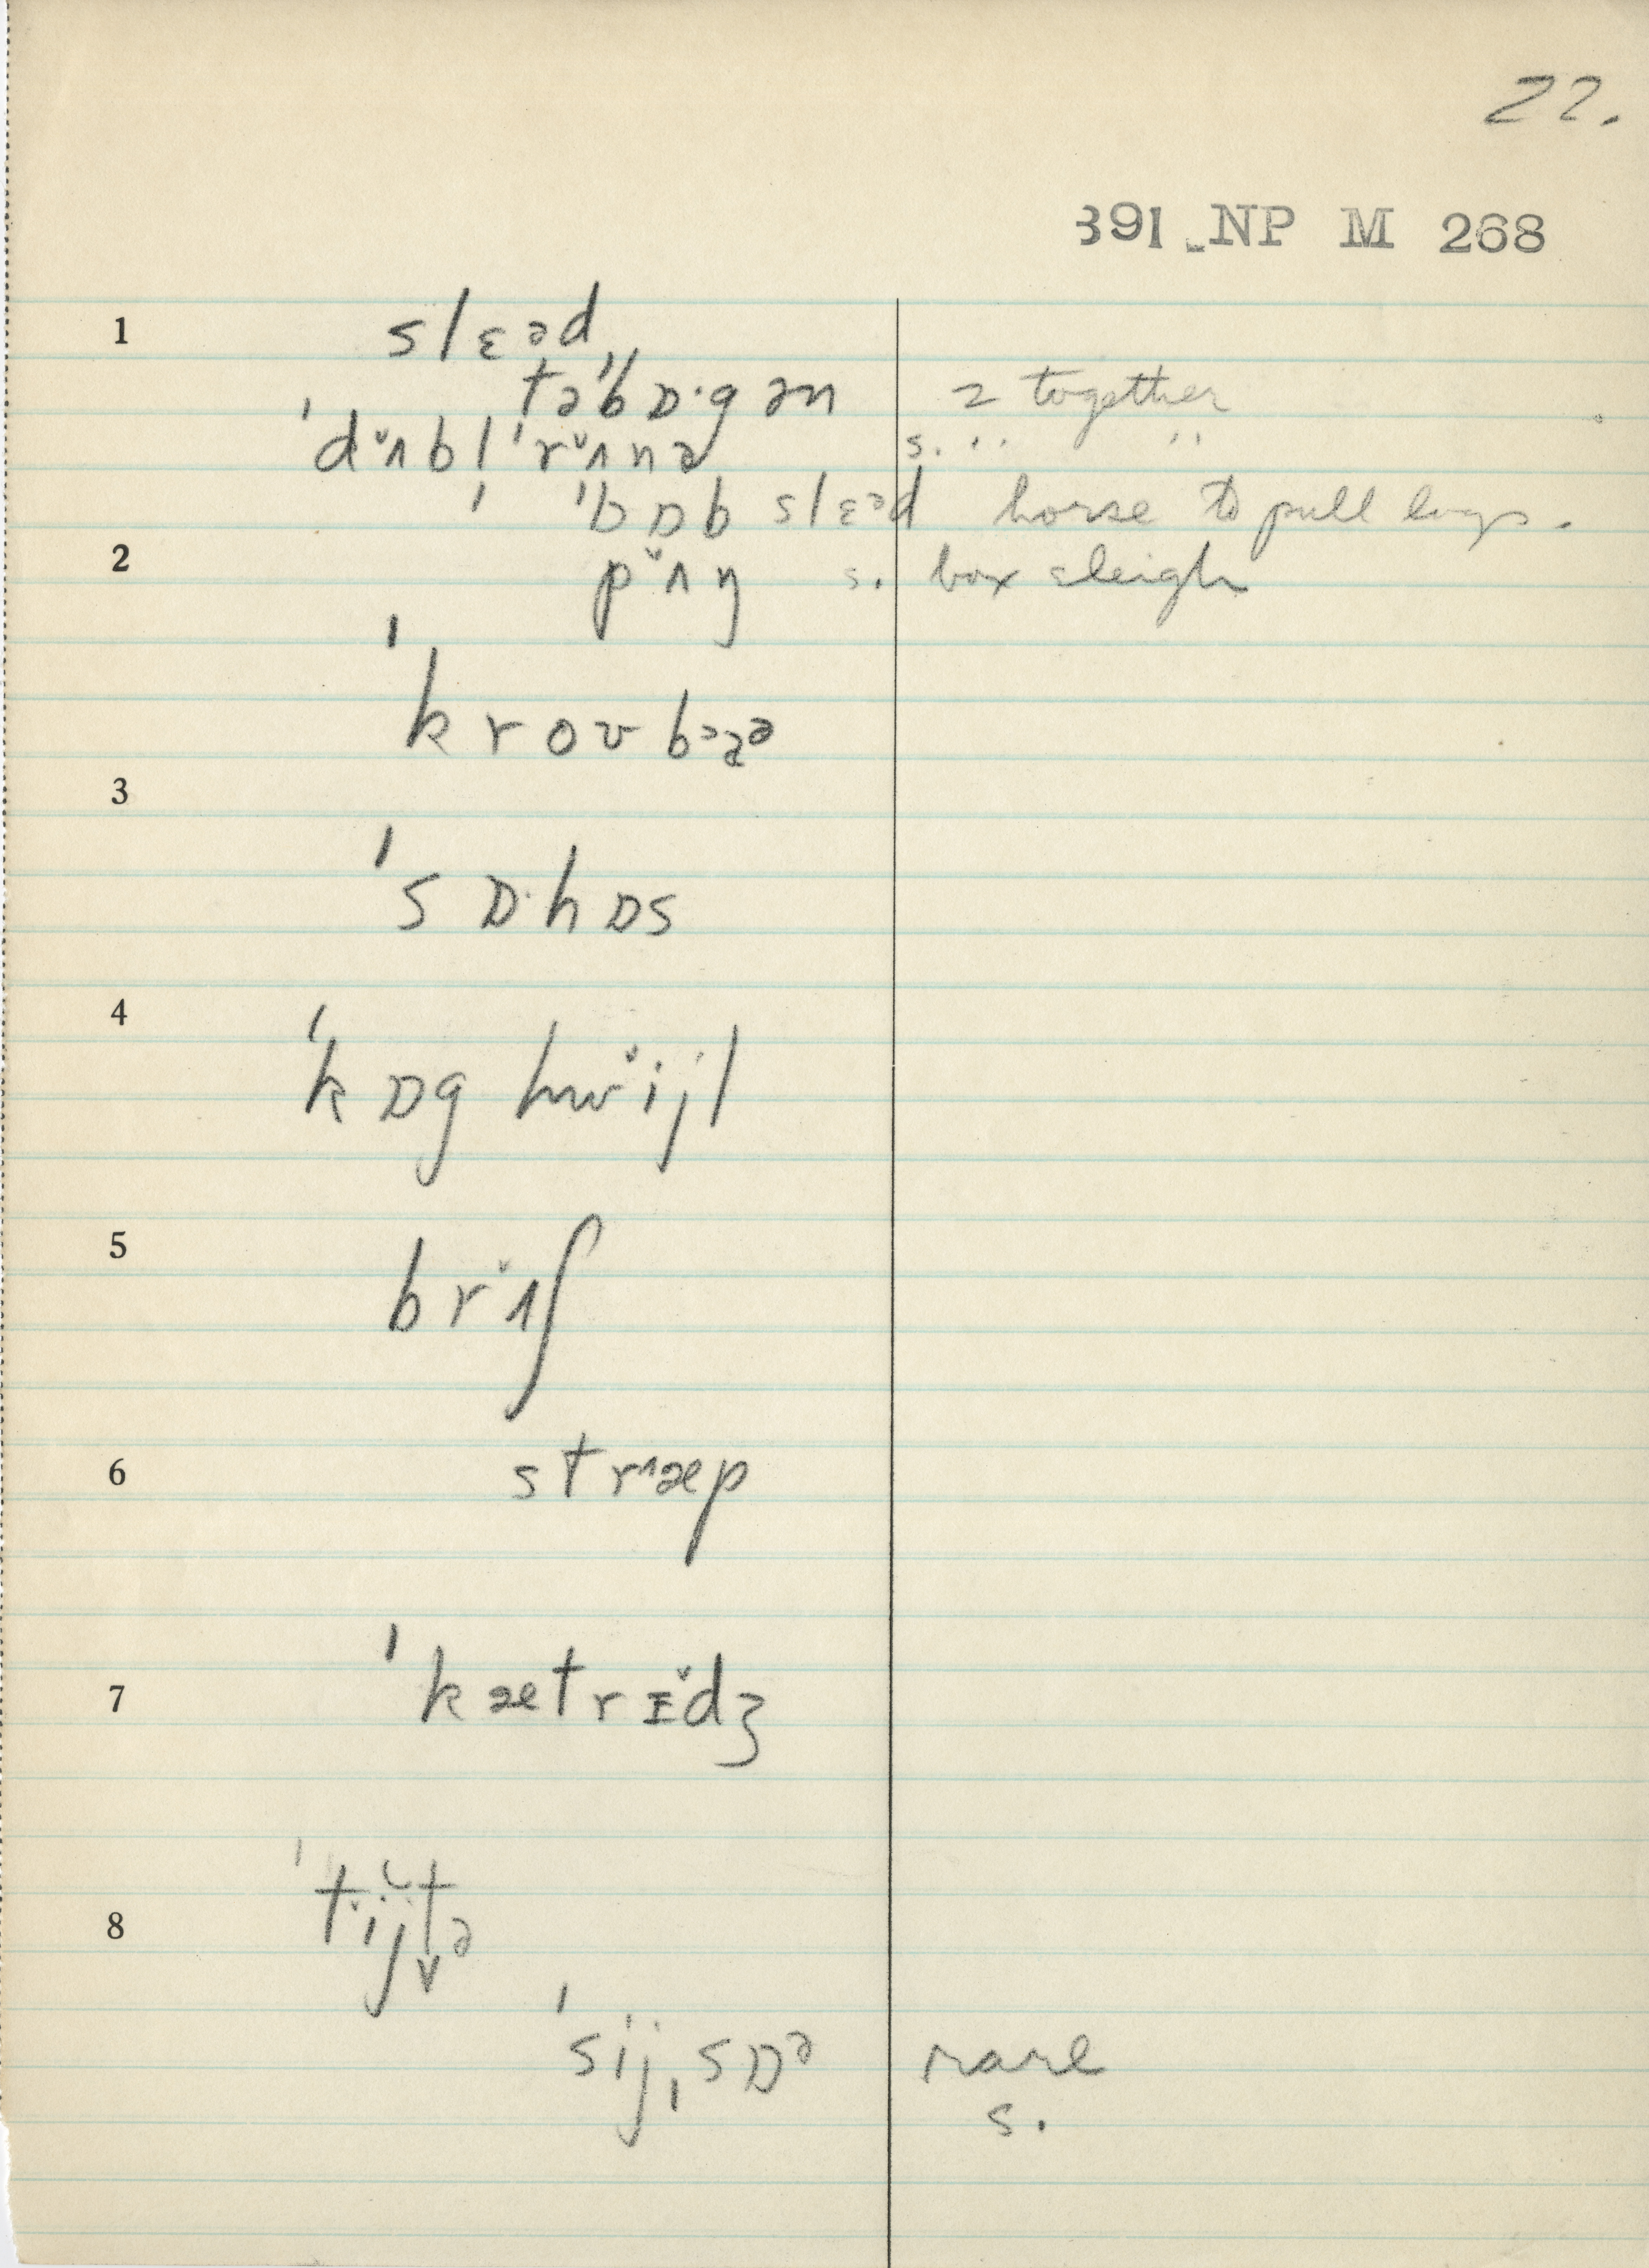 22.
391 NP M 268
1 slɛəd
təˈbɒ·gən 2 together
ˈdʌ̌bl ˈrʌ̌nə s. ·· ··
ˈbɒb slɛəd horse to pull logs.
2 pʌ̌ŋ s. box sleigh
ˈkroʊbɑə
3
ˈsɒ·hɒs
4
ˈkɒg hwǐjl
5 brʌ̌ʃ
6 stræp
7 ˈkætrɪ̌dʒ
8 ˈtijtə
ˈsijˌsɒə rare
s.